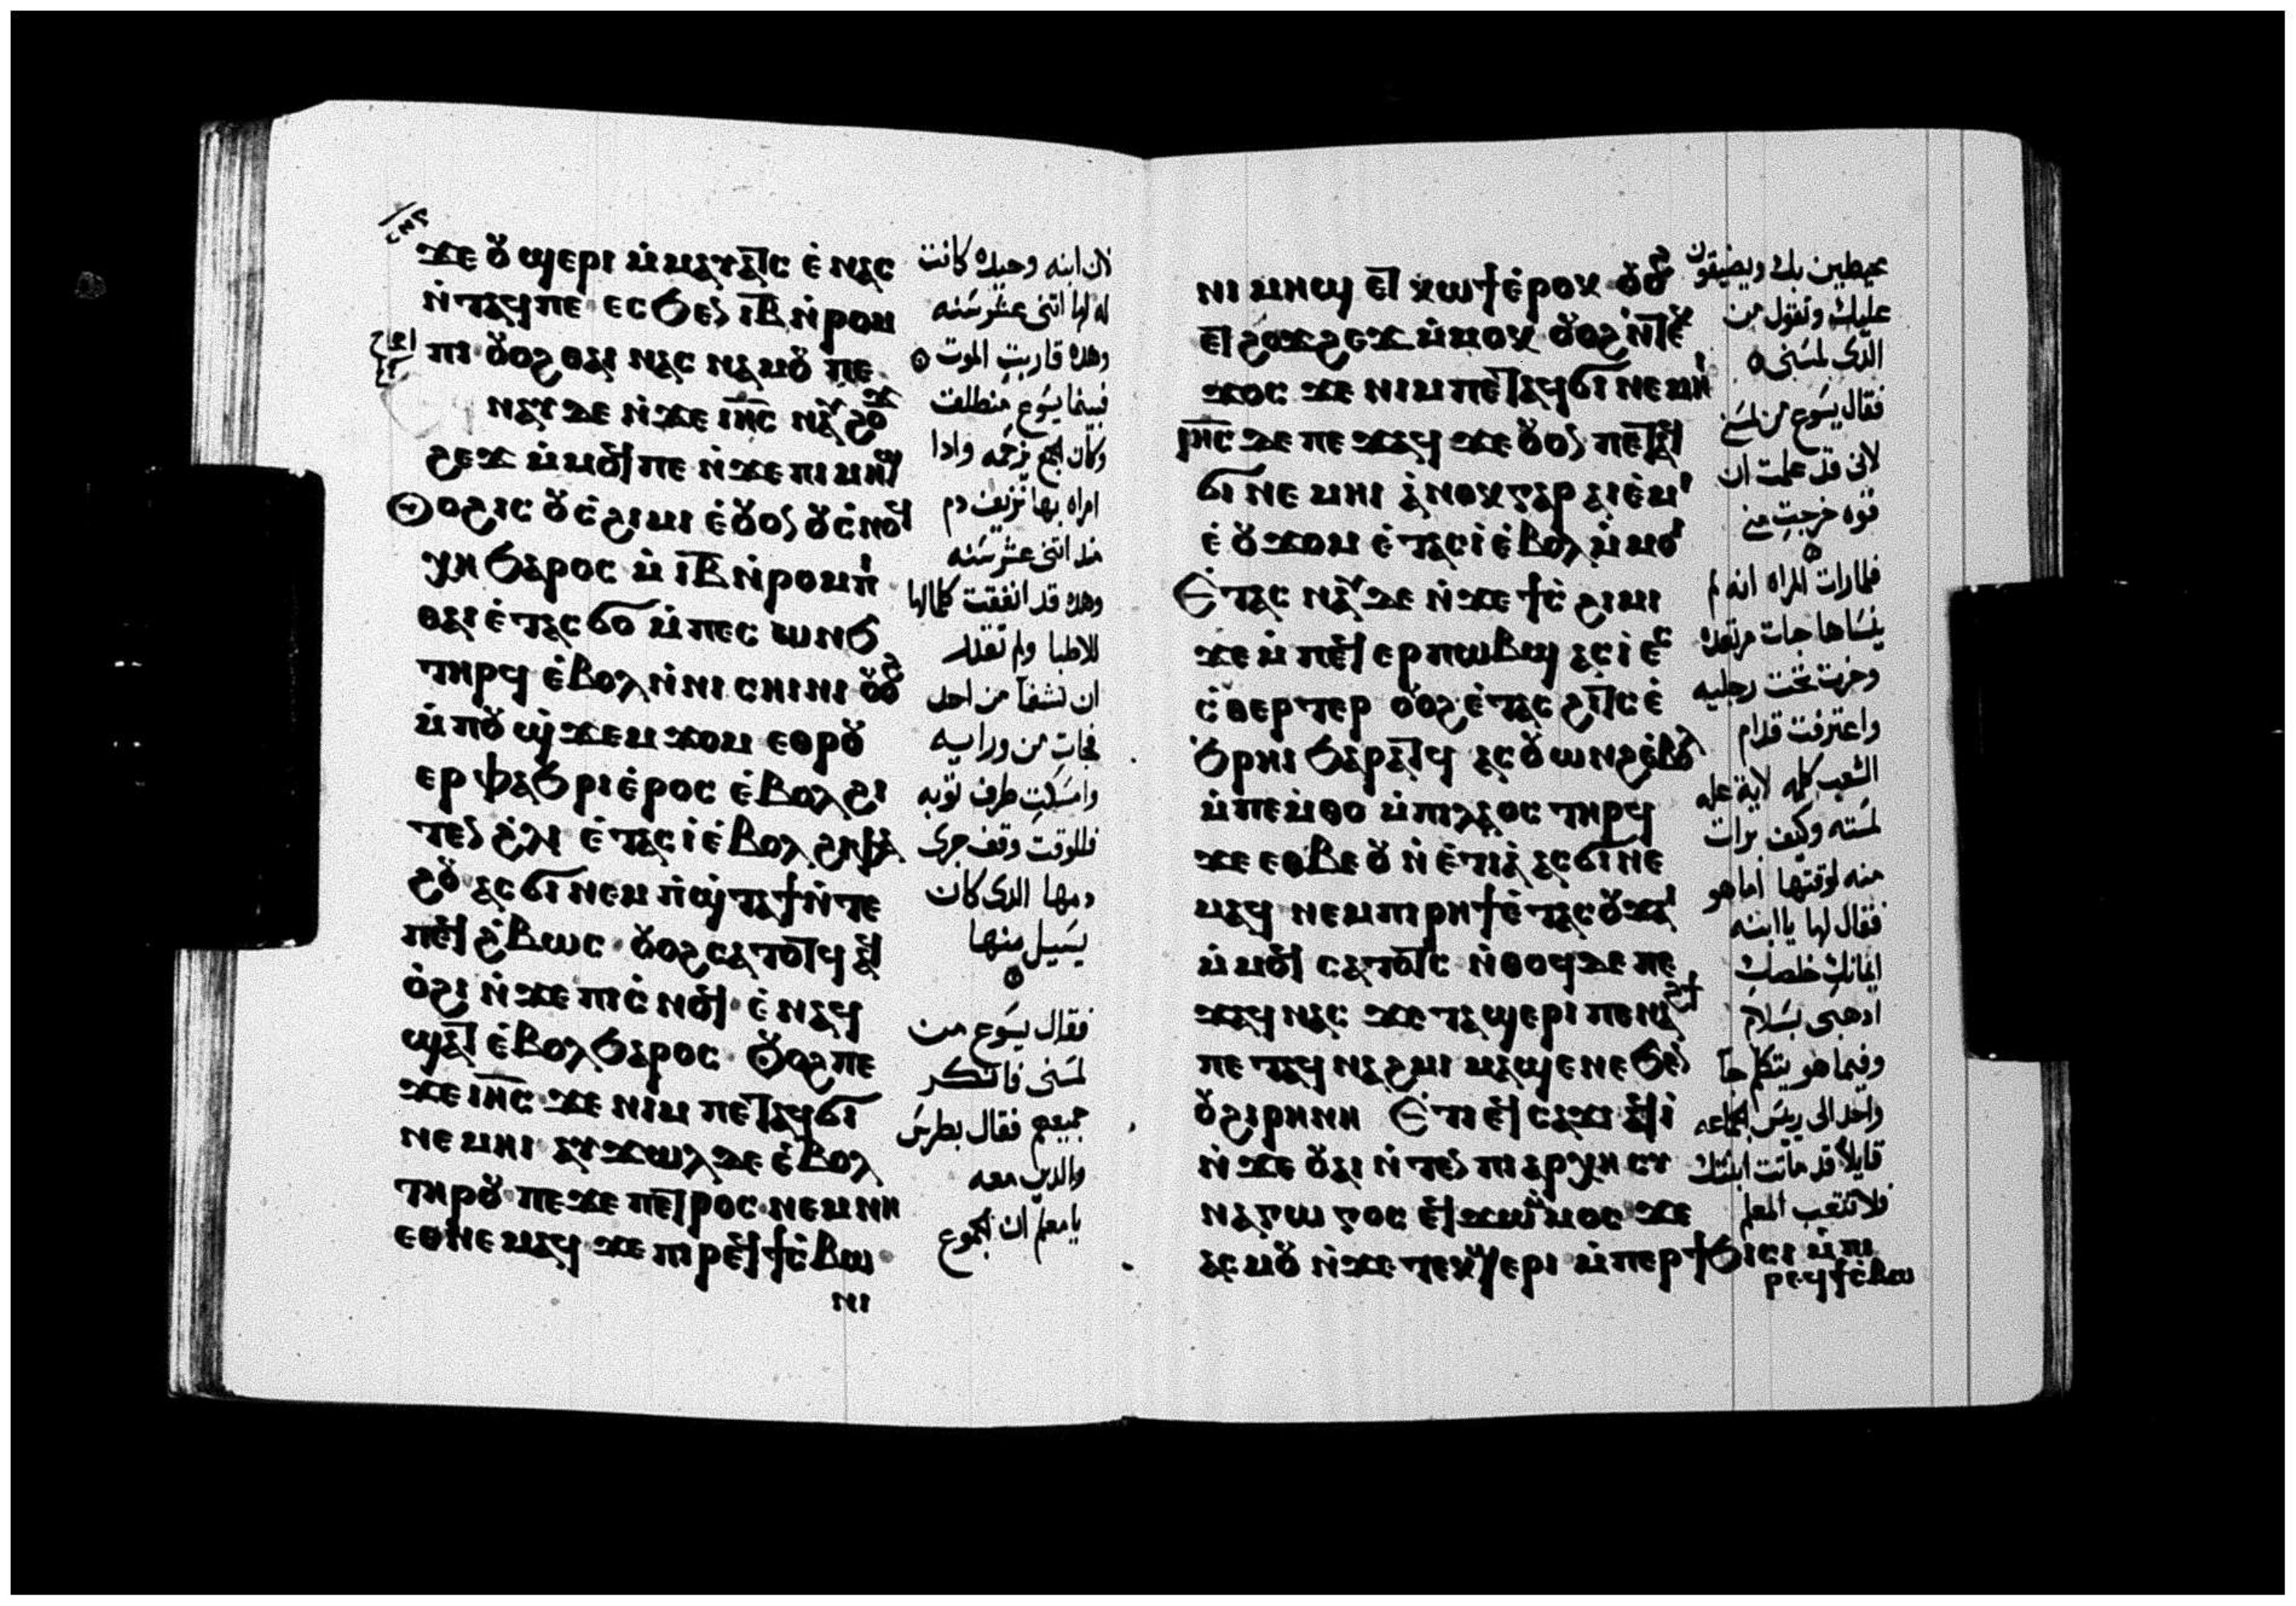 ϫⲉ ⲟⲩ ϣⲉⲣⲓ ⲙ̀ⲙⲁⲩⲁⲧⲥ ⲉ̀ⲛⲁⲥ
ⲛ̀ⲧⲁϥⲡⲉ ⲉⲥϧⲉⲛ ⲓⲃ ⲛ̀ⲣⲟⲙ
ⲡⲓ ⲟⲩⲟϩ ⲑⲁⲓ ⲛⲁⲥ ⲛⲁⲙⲟⲩ ⲡⲉ
ⲛⲁⲩ ⲇⲉ ⲛ̀ϫⲉ ⲓⲏⲥ ⲛⲁⲩ ϩⲟϫ
ϩⲉϫ ⲙ̀ⲙⲟϥ ⲡⲉ ⲛ̀ϫⲉ ⲡⲓ ⲙⲏϣ
ⲟⲩⲟϩ ⲓⲥ ⲟⲩⲥ̀ϩⲓⲙⲓ ⲉ̀ⲟⲩⲟⲛ ⲟⲩⲥ̀ⲛⲟϥ
ⲭⲏ ϧⲁⲣⲟⲥ ⲙ̀ ⲓⲃ ⲛ̀ⲣⲟⲙⲡⲓ
ⲑⲁⲓ ⲉ̀ⲧⲁⲥϭⲟ ⲙ̀ⲡⲉⲥ ⲱⲛϧ
ⲧⲏⲣϥ ⲉ̀ⲃⲟⲗ ⲛ̀ⲛⲓ ⲥⲏⲓⲛⲓ ⲟⲩⲟϩ
ⲙ̀ⲡⲟⲩ ϣ̀ϫⲉⲙ ϫⲟⲙ ⲉⲑⲣⲟⲩ
ⲉⲣ ⲫⲁϧⲣⲓ ⲉ̀ⲣⲟⲥ ⲉ̀ⲃⲟⲗ ϩⲓ
ⲧⲉⲛ ϩ̀ⲗⲓ ⲉ̀ⲧⲁⲥⲓ̀ ⲉ̀ⲃⲟⲗ ϩⲓⲫⲁ
ϩⲟⲩ ⲁⲥϭⲓ ⲛⲉⲙ ⲡ̀ϣ̀ⲧⲁϯ ⲛ̀ⲧⲉ
ⲡⲉϥ ϩ̀ⲃⲱⲥ ⲟⲩⲟϩ ⲥⲁⲧⲟⲧϥ ⲁϥ
ⲟ̀ϩⲓ ⲛ̀ϫⲉ ⲡⲓⲥ̀ⲛⲟϥ ⲉ̀ⲛⲁϥ
ϣⲁⲧ ⲉ̀ⲃⲟⲗ ϧⲁⲣⲟⲥ ⲟⲩⲟϩ ⲡⲉ
ϫⲉ ⲓⲏⲥ ϫⲉ ⲛⲓⲙ ⲡⲉⲧⲁϥϭⲓ
ⲛⲉⲙⲏⲓ ⲁⲩϫⲱⲗ ⲇⲉ ⲉ̀ⲃⲟⲗ
ⲧⲏⲣⲟⲩ ⲡⲉϫⲉ ⲡⲉⲧⲣⲟⲥ ⲛⲉⲙ ⲛⲏ
ⲉⲑⲛⲉⲙⲁϥ ϫⲉ ⲡⲓⲣⲉϥϯⲥ̀ⲃⲱ
ⲛⲓ
لان ابنه وحيده كانت
له لها اثنى عشر سنه
وهذه قاربت الموت
فبينما يسوع منطلق
وكان الجمع يزحمه واذا
امراه بها نزيف دم
منذ اثنى عشر سنه
وهذه قد انفقت كلمالها
للاطبا ولم تقدر
ان تشفا من احد
فجات من ورايه
وامسكت طرف ثوبه
فللوقت وقف جرى
دمها الذى كان
يسيل منها
فقال يسوع من
لمسنى فانكر
جميعهم فقال بطرس
والذين معه
يا معلم ان الجموع
ⲛⲓ ⲙⲏϣ ⲉⲧ ϩⲱϯ ⲉ̀ⲣⲟⲕ ⲟⲩⲟϩ
ⲉⲧϩⲟϫϩⲉϫ ⲙ̀ⲙⲟⲕ ⲟⲩⲟϩ ⲛ̀ⲧⲉⲕ
ϫⲟⲥ ϫⲉ ⲛⲓⲙ ⲡⲉⲧⲁϥϭⲓ ⲛⲉⲙⲏⲓ
ⲓⲏⲥ ⲇⲉ ⲡⲉϫⲁϥ ϫⲉ ⲟⲩⲟⲛ ⲡⲉⲧⲁϥ
ϭⲓ ⲛⲉⲙⲏⲓ ⲁ̀ⲛⲟⲕ ⲅⲁⲣ ⲁⲓⲉ̀ⲙⲓ
ⲉ̀ⲟⲩϫⲟⲙ ⲉ̀ⲧⲁⲥⲓ̀ ⲉ̀ⲃⲟⲗ ⲙ̀ⲙⲟⲓ
Ⲉ̀ⲧⲁⲥ ⲛⲁⲩ ⲇⲉ ⲛ̀ϫⲉ ϯⲥ̀ϩⲓⲙⲓ
ϫⲉ ⲙ̀ⲡⲉϥ ⲉⲣⲡⲱⲃϣ ⲁⲥⲓ̀ ⲉⲥ
ⲥ̀ⲑⲉⲣⲧⲉⲣ ⲟⲩⲟϩ ⲉ̀ⲧⲁⲥ ϩⲓⲧⲥ ⲉ̀
ϧⲣⲏⲓ ϧⲁⲣⲁⲧϥ ⲁⲥⲟⲩⲱⲛϩ ⲉ̀ⲃⲟⲗ
ⲙ̀ⲡⲉⲙ̀ⲑⲟ ⲙ̀ⲡⲓⲗⲁⲟⲥ ⲧⲏⲣϥ
ϫⲉ ⲉⲑⲃⲉ ⲟⲩ ⲛ̀ⲉ̀ⲧⲓⲁ̀ ⲁⲥϭⲓ ⲛⲉ
ⲙⲁϥ ⲛⲉⲙ ⲡⲓⲣⲏϯ ⲉ̀ⲧⲁⲥⲟⲩϫⲁⲓ
ⲙ̀ⲙⲟϥ ⲥⲁⲧⲟⲧⲥ ⲛ̀ⲑⲟϥ ⲇⲉ ⲡⲉ
ϫⲁϥ ⲛⲁⲥ ϫⲉ ⲧⲁϣⲉⲣⲓ ⲡⲉⲛⲁϩϯ
ⲡⲉⲧⲁϥ ⲛⲁϩⲙⲓ ⲙⲁϣⲉⲛⲉ ϧⲉⲛ
ⲟⲩϩⲓⲣⲏⲛⲏ Ⲉ̀ⲧⲓ ⲉϥⲥⲁϫⲓ ⲁϥⲓ̀
ⲛ̀ϫⲉ ⲟⲩⲁⲓ ⲛ̀ⲧⲉⲛ ⲡⲓⲁⲣⲭⲏⲥⲩ
ⲛⲁⲅⲱⲅⲟⲥ ⲉϥϫⲱ ⲙ̀ⲙⲟⲥ ϫⲉ
ⲁⲥⲙⲟⲩ ⲛ̀ϫⲉ ⲧⲉⲕϣⲉⲣⲓ ⲙ̀ⲡⲉⲣϯϧⲓⲥⲓ ⲙ̀ⲡⲓ
ⲣⲉϥϯⲥ̀ⲃⲱ
محيطين بك ويضيقون
عليك وتقول من
الذى لمسنى
فقال يسوع من لمسنى
لانى قد علمت ان
قوه خرجت منى
فلما رات المراه انه لم
ينساها جات مرتعده
وخرت تحت رجليه
واعترفت قدام
الشعب كله لاية عله
لمسته وكيف برات
منه لوقتها اما هو
فقال لها يا ابنه
ايمانك خلصك
اذهبى بسلام
وفيما هو يتكلم جا
واحد الى ريس الجماعه
قايلا قد ماتت ابنتك
فلا تتعب المعلم